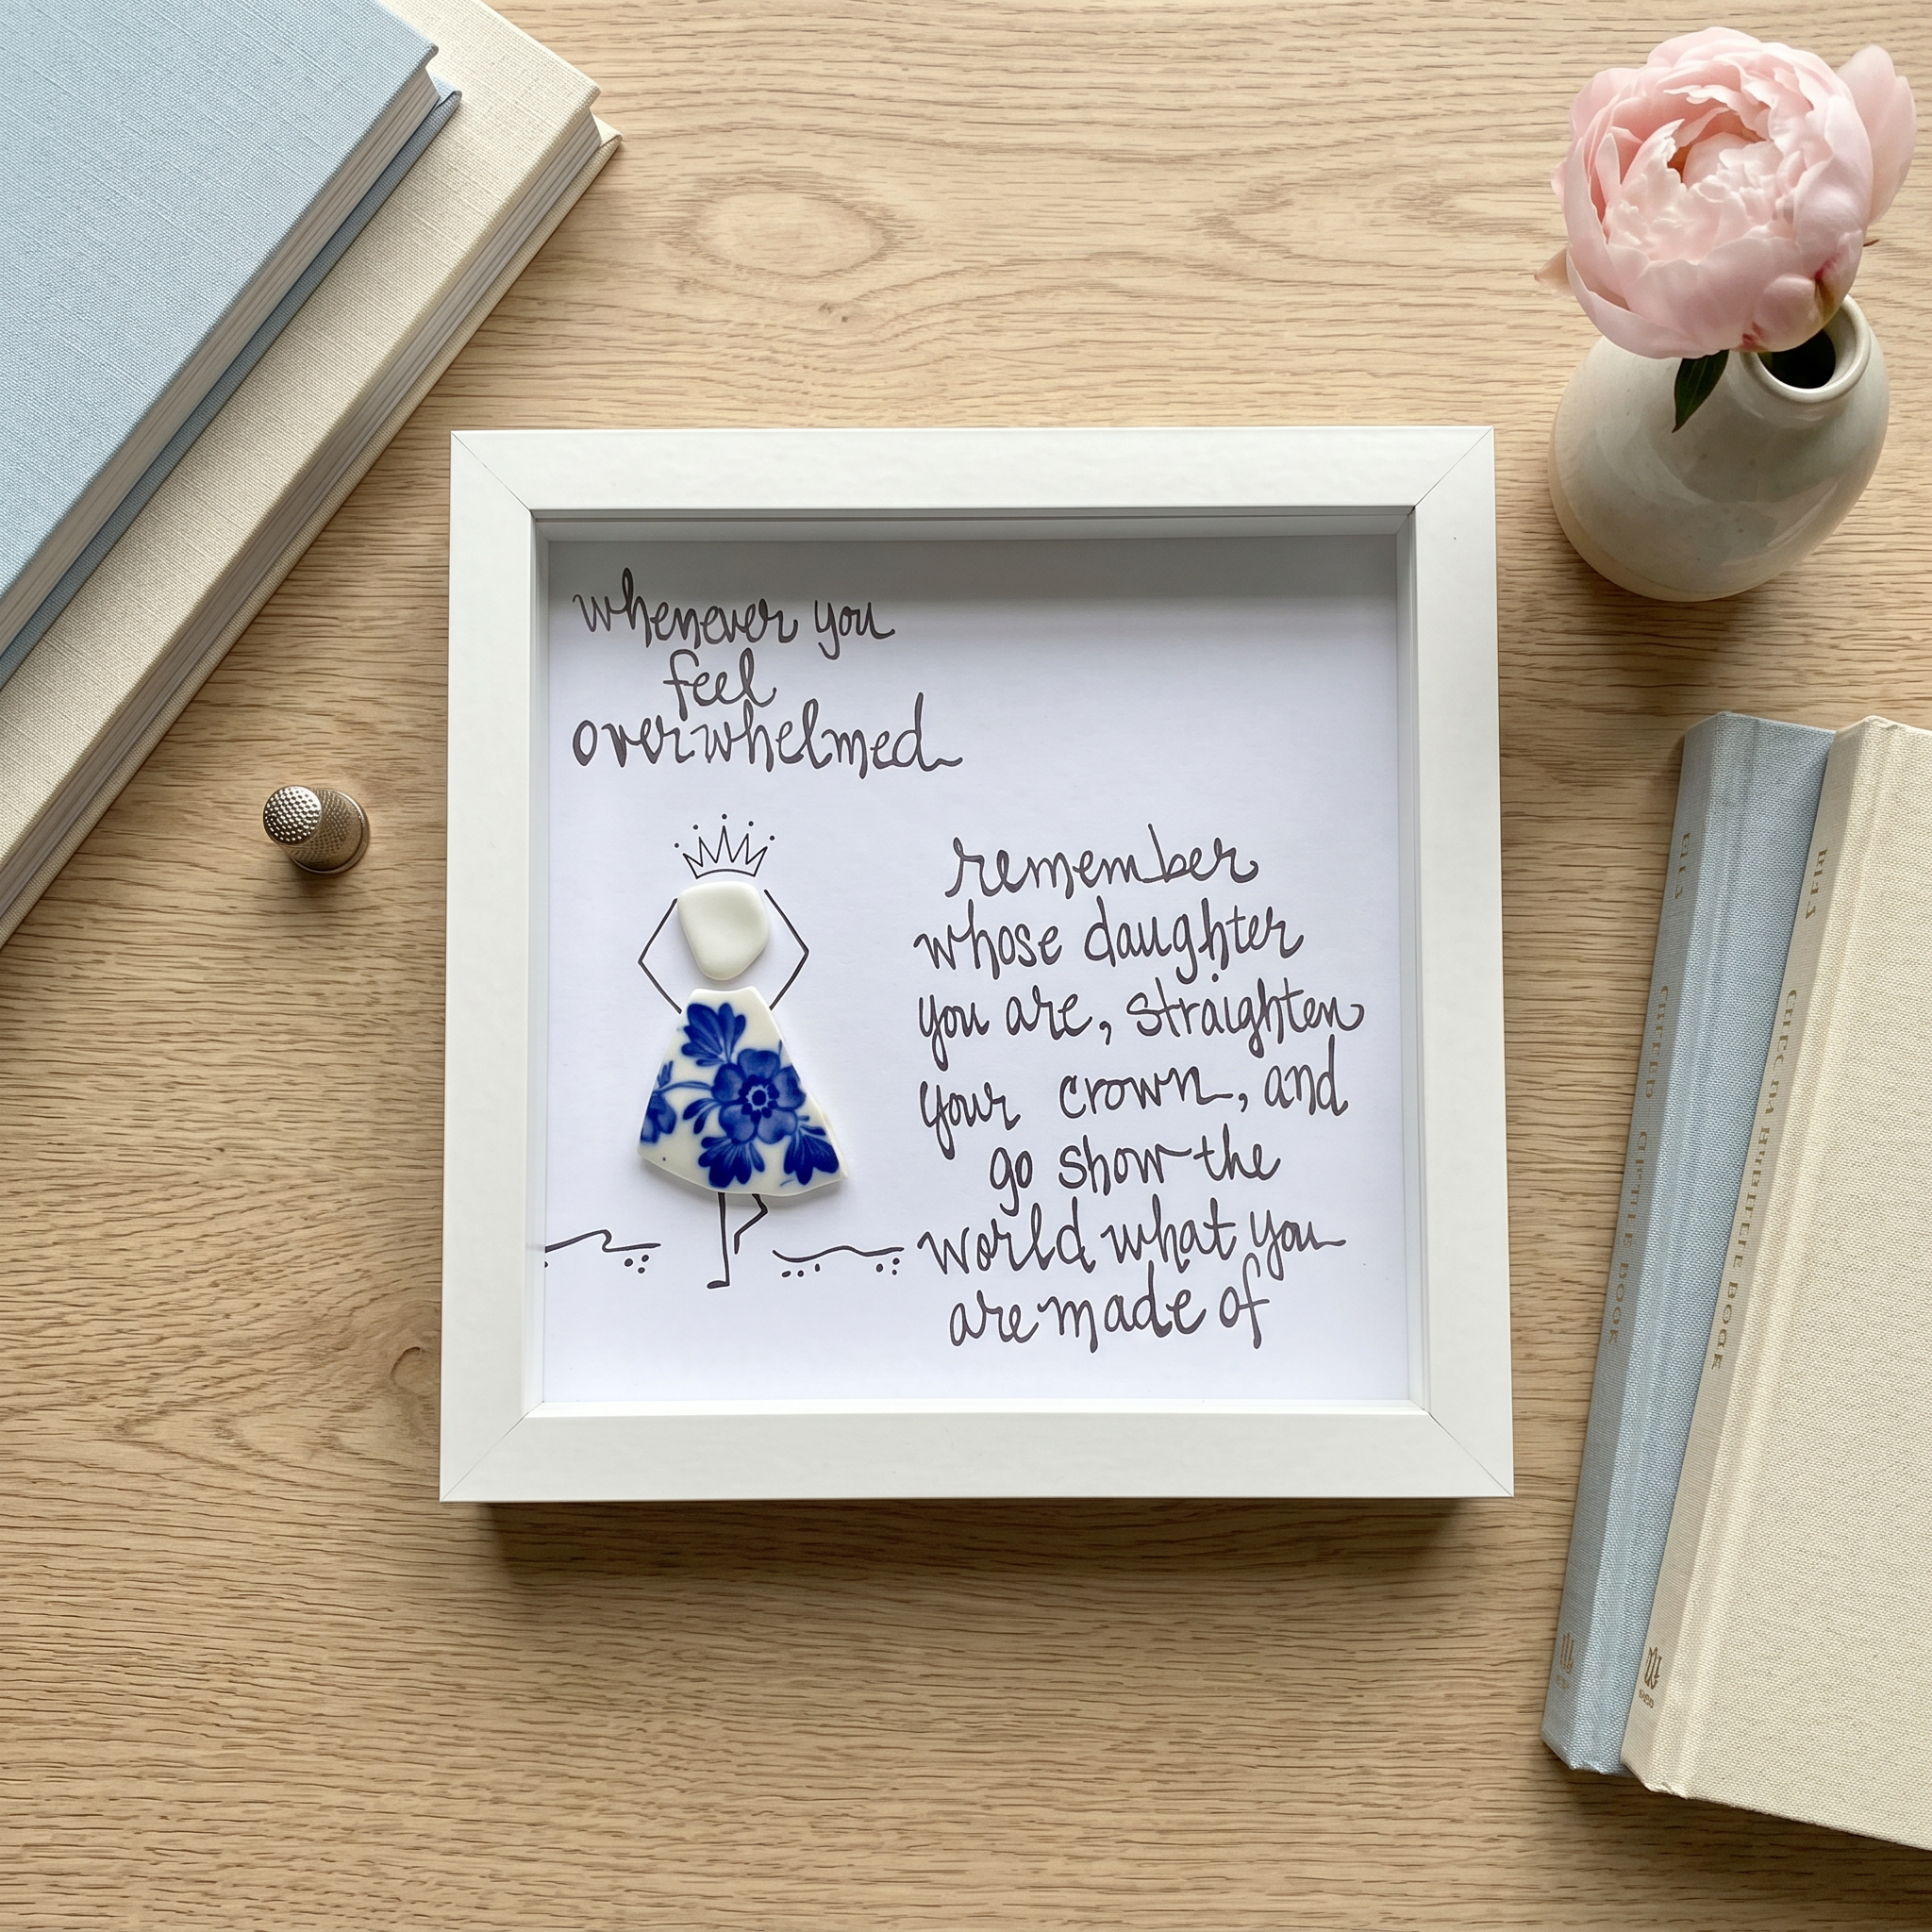 whenever you
feel
overwhelmed
remember
whose daughter
you are, straighten
your crown, and
go show the
world what you
are made of